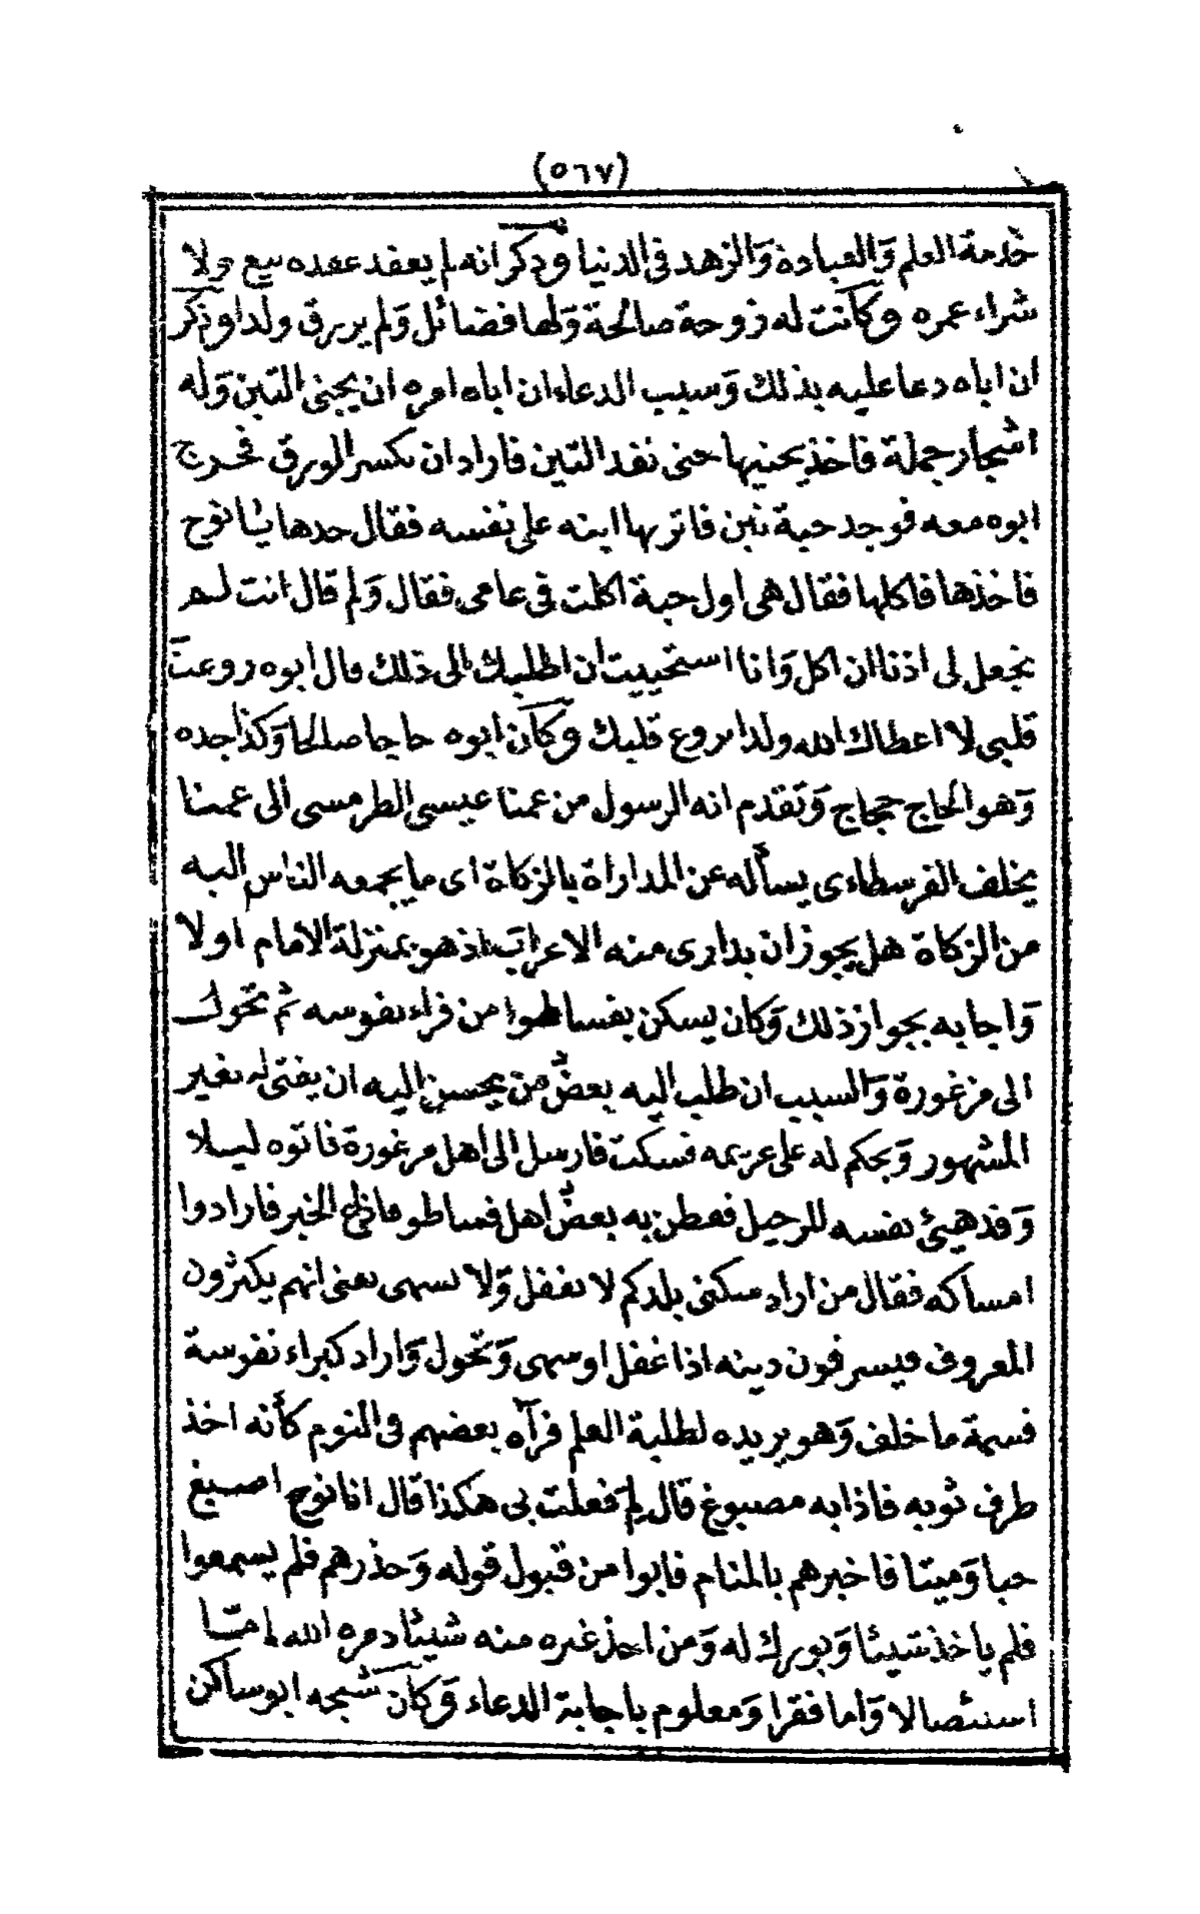 (٥٦٧)
خدمة العلم والعبادة والزهد فى الدنيا وذكر انه لم يعقد عقده بيع ولا
شراء عمره وكانت له زوجة صالحة ولها فضائل ولم يرزق ولدا وذكر
ان اباه دعا عليه بذلك وسبب الدعاء ان اباه امره ان يجنى التين وله
اشجار جملة فاخذ يجنيها حتى نفد التين فاراد ان يكسر الورق فخرج
ابوه معه فوجد حبة تين فاثر بها ابنه على نفسه فقال خدها يا نوح
فاخذها فاكلها فقال هى اول حبة اكلت فى عامى فقال ولم قال انت لم
تجعل لى اذنا ان اكل وانا استحييت ان اطلبك الى ذلك قال ابوه روعت
قلبى لا اعطاك الله ولدا يروع قلبك وكان ابوه حاجا صالحا وكذا جده
وهو الحاج حجاج وتقدم انه الرسول من عمنا عيسى الطرمسى الى عمنا
يخلف الفرسطاءى يسأله عن المداراة بالزكاة اى ما يجمعه الناس اليه
من الزكاة هل يجوز ان يدارى منه الاعراب اذ هو بمنزلة الامام او لا
واجابه بجواز ذلك وكان يسكن بفساطوا من قراء نفوسه ثم تحول
الى مرغورة والسبب ان طلب اليه بعض من يحسن اليه ان يفتى له بغير
المشهور ويحكم له على غريمه فسكت فارسل الى اهل مرغورة فاتوه ليلا
وقد هيئ نفسه للرحيل ففطن به بعض اهل فساطو الخبر فارادوا
امساكه فقال من اراد سكنى بلدكم لا يغفل ولا يسهى يعنى انهم يكثرون
المعروف فيسرقون دينه اذا غفل او سهى وتحول واراد كبراء نفوسة
قسمة ما خلف وهو يريده لطلبة العلم فرآه بعضهم فى النوم كأنه اخذ
طرف ثوبه فاذا به مصبوغ قال لم فعلت بى هكذا قال انا نوح اصبغ
حيا وميتا فاخبرهم بالمنام فابوا من قبول قوله وحذرهم فلم يسمعوا
فلم ياخذ شيئا وبورك له ومن اخذ غيره منه شيئا دمره الله اما
استئصالا واما فقرا ومعلوم باجابة الدعاء وكان شيخه ابو ساكن